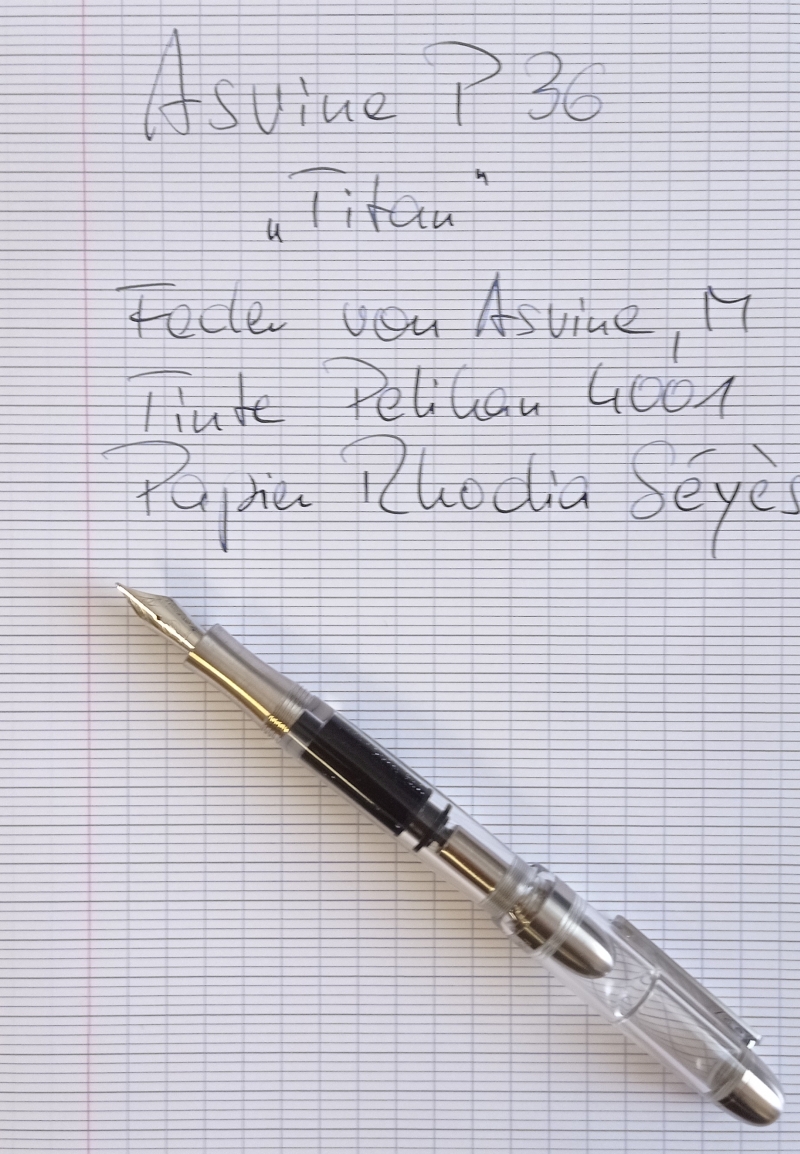 Asvine P 36
„Titan"
Feder von Asvine, M
Tinte Pelikan 4001
Papier Rhodia Séyès